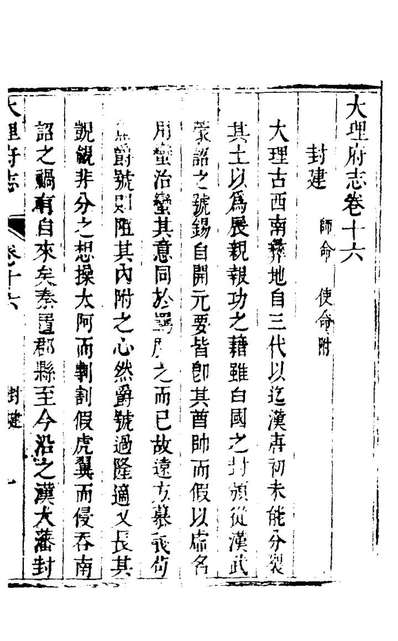 大理府志卷十六
封建 師命 使命附
大理古西南彝地自三代以迄漢唐初未能分裂
其土以爲展親報功之藉雖白國之封頒從漢武
蒙詔之號錫自開元要皆卽其酋帥而假以虛名
用蠻治蠻其意同於羈縻之而已故遠方慕義苟
無爵號則阻其內附之心然爵號過隆適又長其
覬覦非分之想操太阿而剸割假虎翼而侵吞南
詔之禍有自來矣秦置郡縣至今沿之漢大藩封
大理府志 卷十六 封建 一